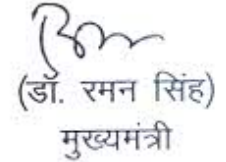 (डॉ. रमन सिंह)
मुख्यमंत्री